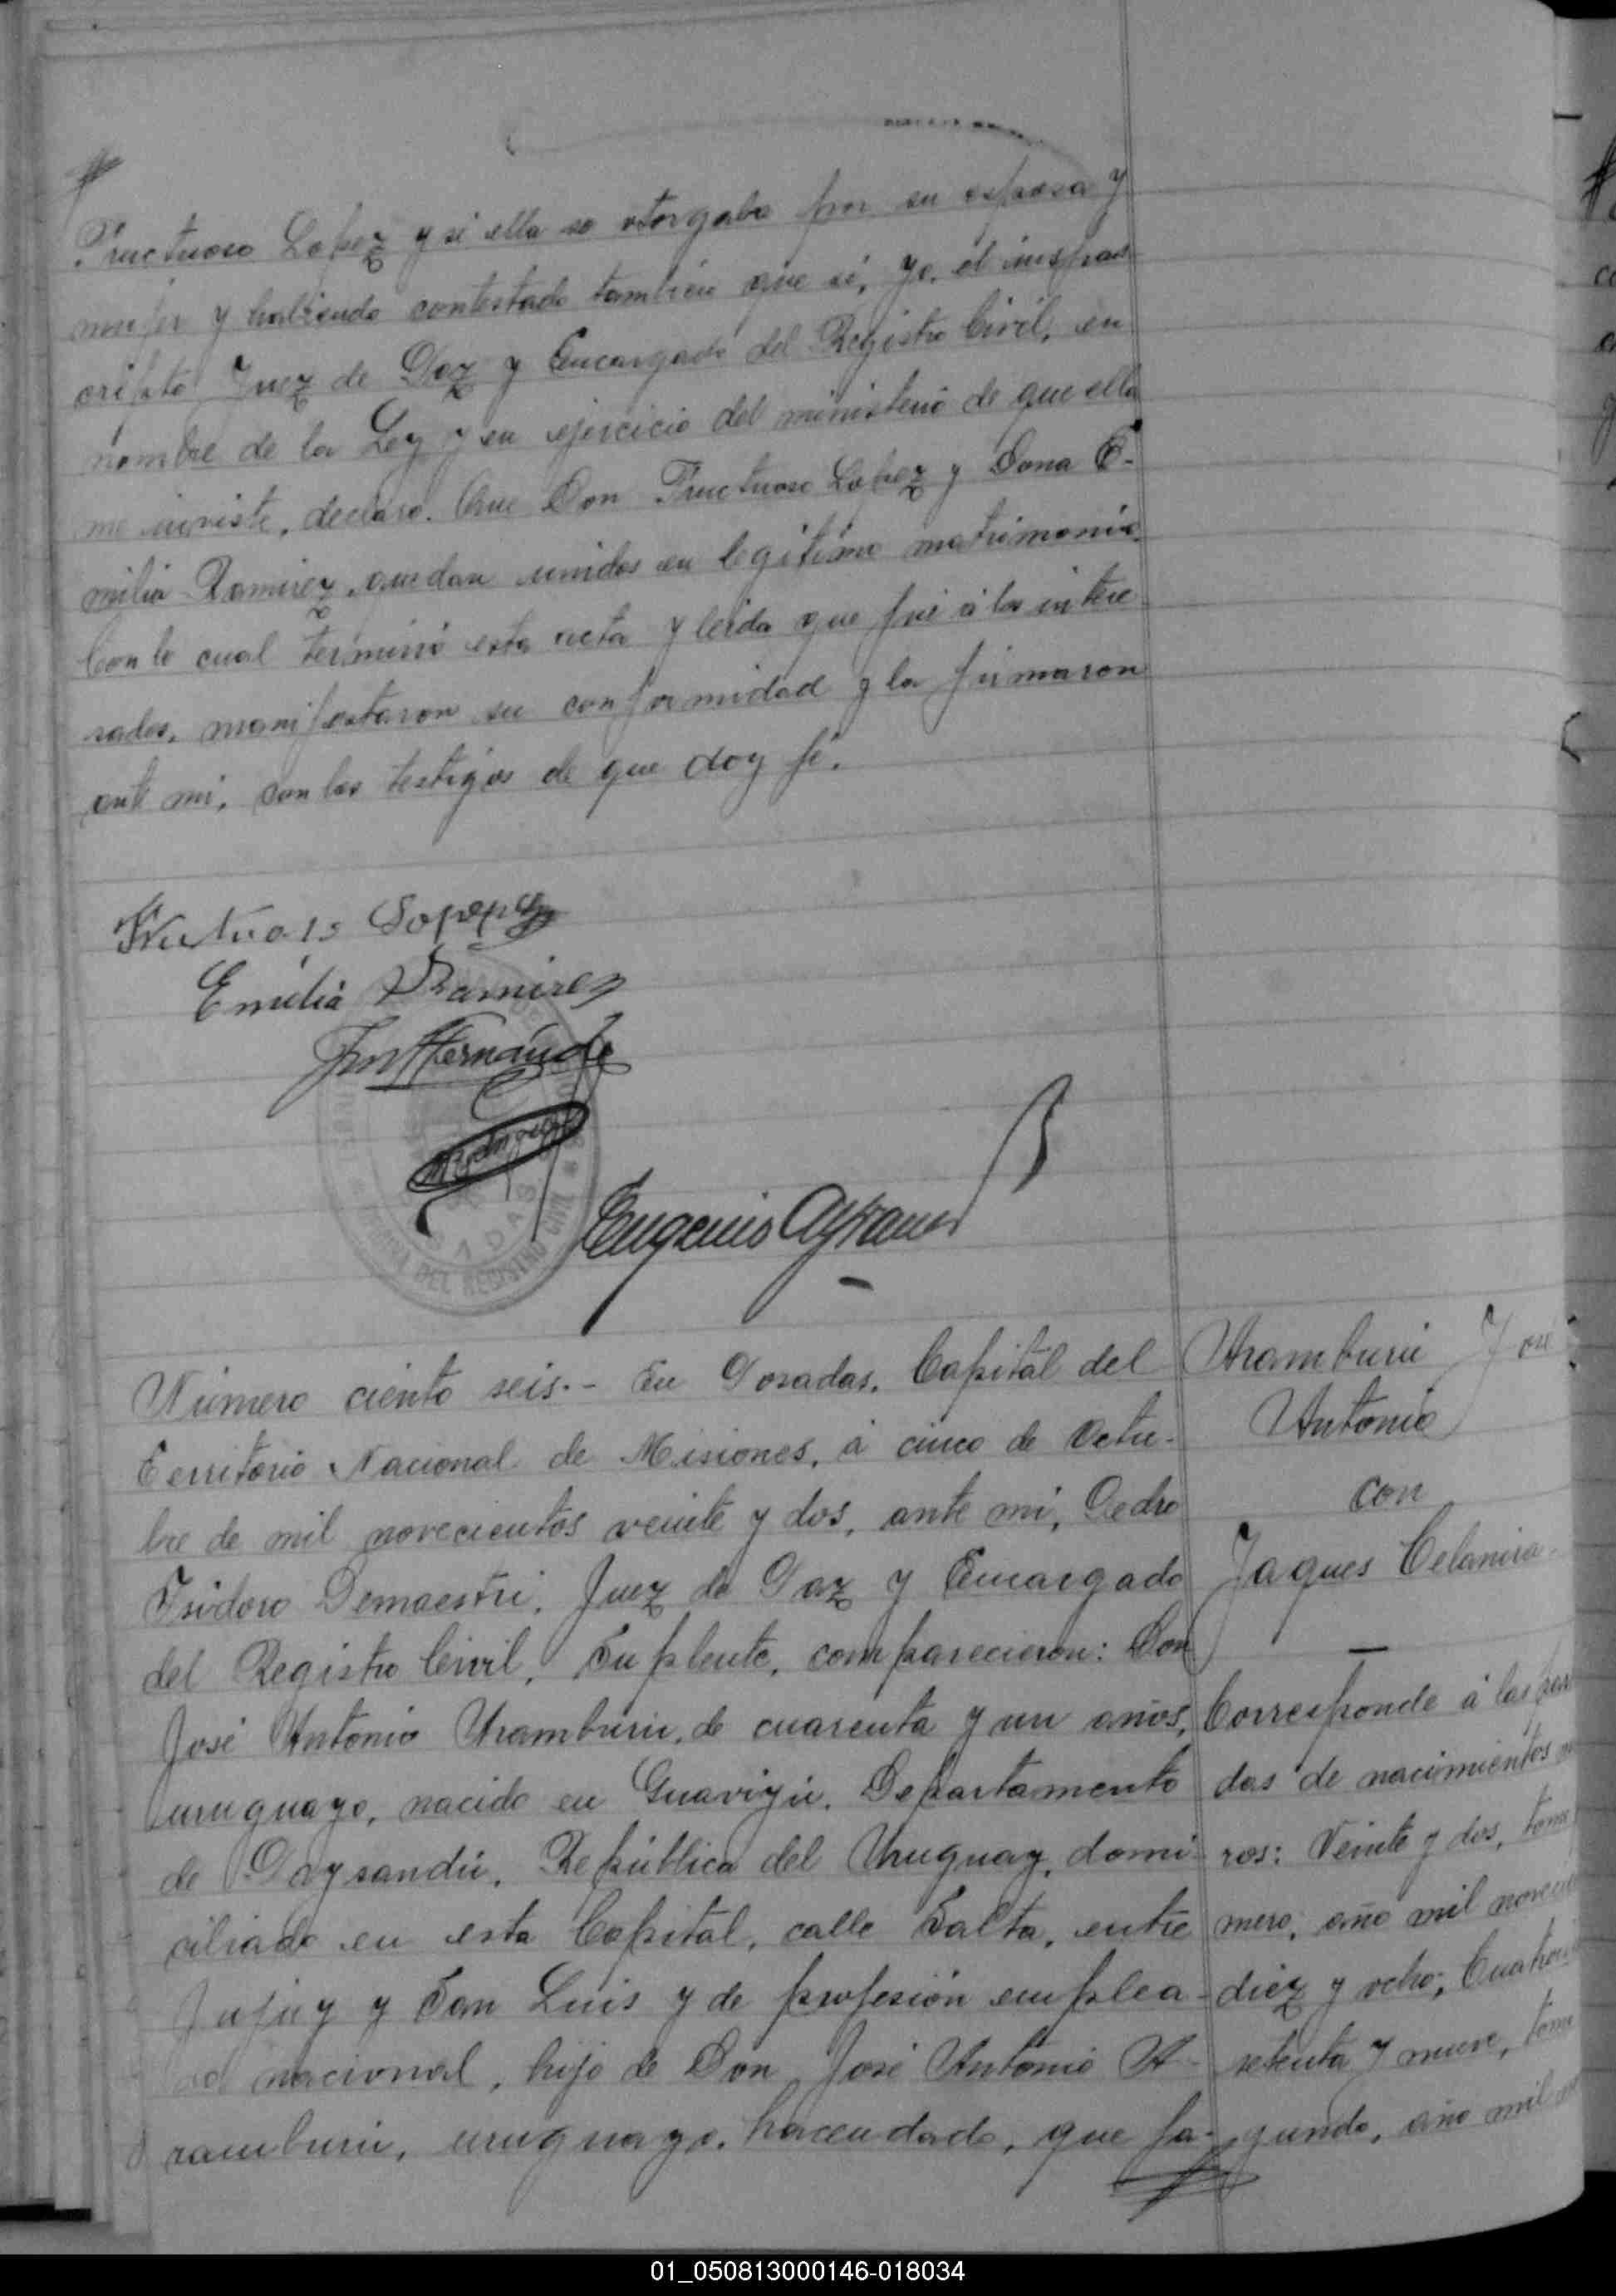 Fructuoso Lopez y si ella se otorgaba por su esposa y
mujer y habiendo contestado tambien que si, yo, el infras-
cripto Juez de Paz y Encargado del Registro Civil, en
nombre de la Ley y en ejercicio del ministerio de que ella
me inviste, declaro. Que Don Fructuoso Lopez y Dona E-
milia Ramirez, quedan unidos en legitimo matrimonio.
Con lo cual terminó esta acta y leida que fué á los intere-
sados, manifestaron su conformidad y la firmaron
ante mi, con los testigos de que doy fé.
Emilia Ramirez
Eugenio
OFICINA DEL REGISTRO CIVIL
Número ciento seis.- En Posadas, Capital del
Territorio Nacional de Misiones, á cinco de Octu-
bre de mil novecientos veinte y dos, ante mi, Pedro
Isidoro Demaestri, Juez de Paz y Encargado
del Registro Civil, Suplente, comparecieron: Don
José Antonio Aramburú, de cuarenta y un años,
uruguayo, nacido en Guaviyú, Departamento
de Paysandú, República del Uruguay, domi-
ciliado en esta Capital, calle Salta, entre
Jujuy y San Luis y de profesión emplea-
do nacional, hijo de Don José Antonio A-
ramburú, uruguayo, hacendado, que fa-
Aramburú José
Antonio
con
Jaques Celanira-
Corresponde á las
das de nacimientos
ros: Veinte y dos, tomo
mero, año mil
diez y ocho;
setenta y nueve, tomo
gundo, año mil
01_050813000146-018034